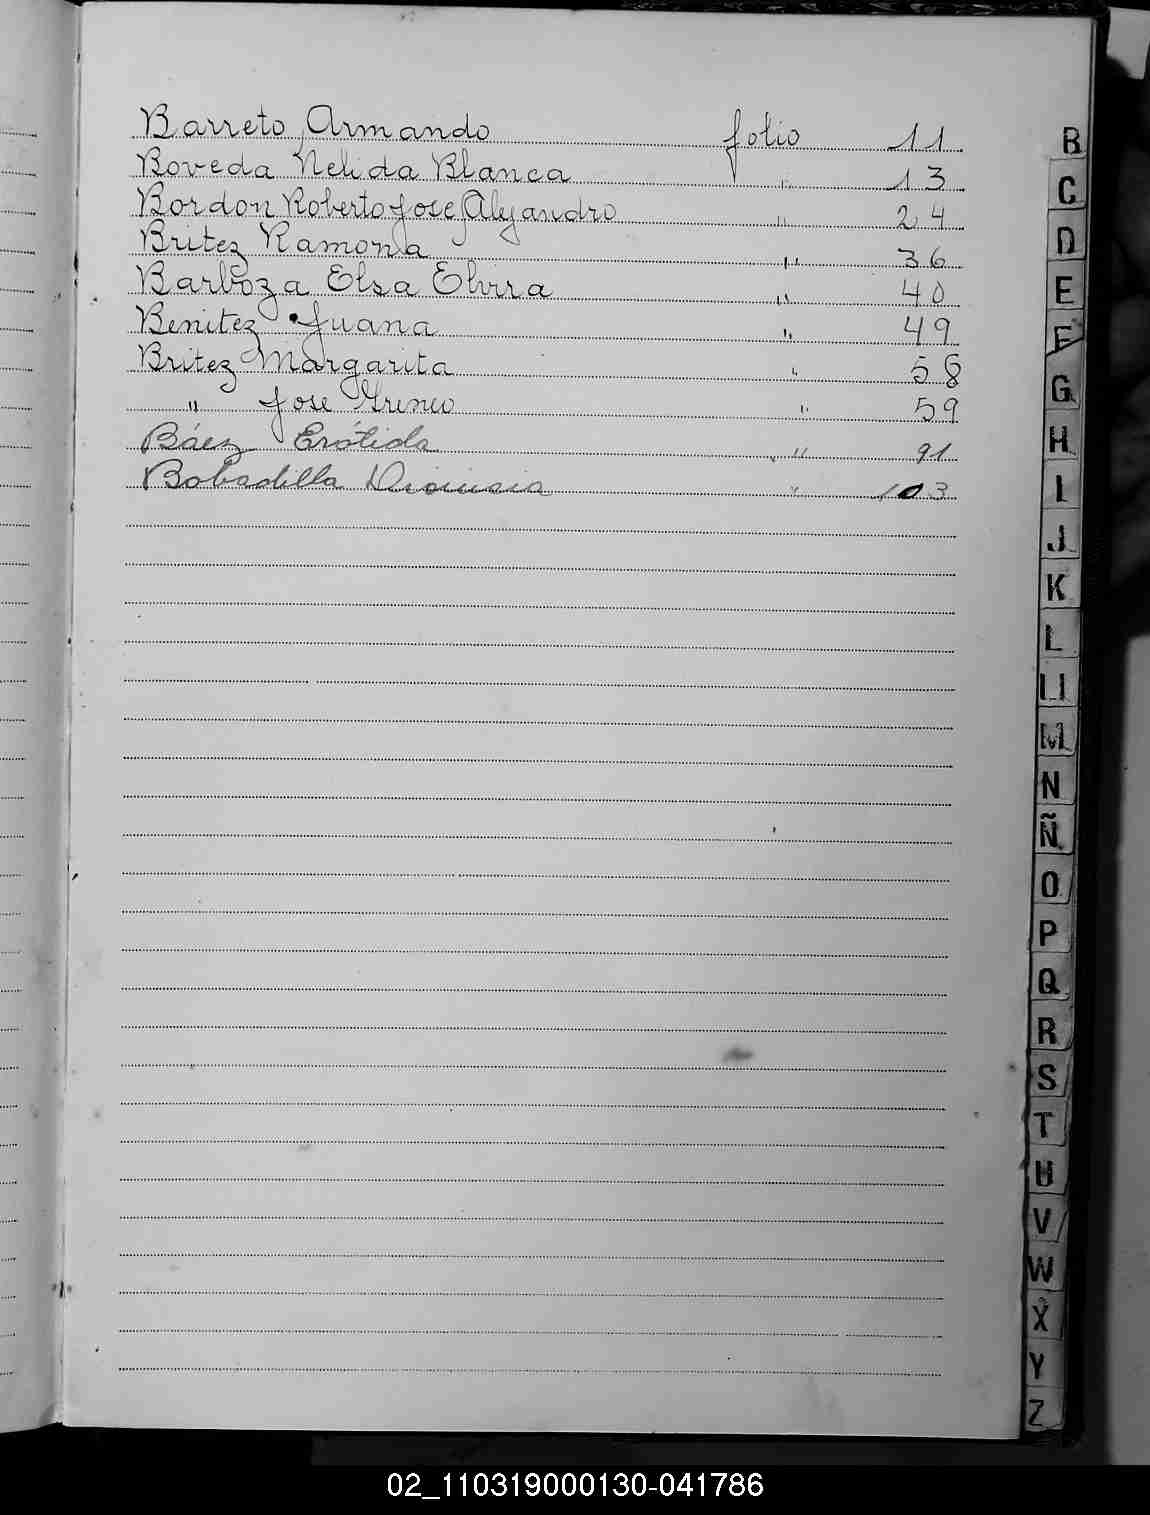 Barreto Armando folio 11
Boveda Nelida Blanca " 13
Bordon Roberto Jose Alejandro " 24
Britez Ramona " 36
Barboza Elsa Elvira " 40
Benitez Juana " 49
Britez Margarita " 58
" Jose Irineo " 59
Báez Erótida " 91
Bobadilla Dionisia " 103
B
C
D
E
F
G
H
I
J
K
L
Ll
M
N
Ñ
O
P
Q
R
S
T
U
V
W
X
Y
Z
02_110319000130-041786